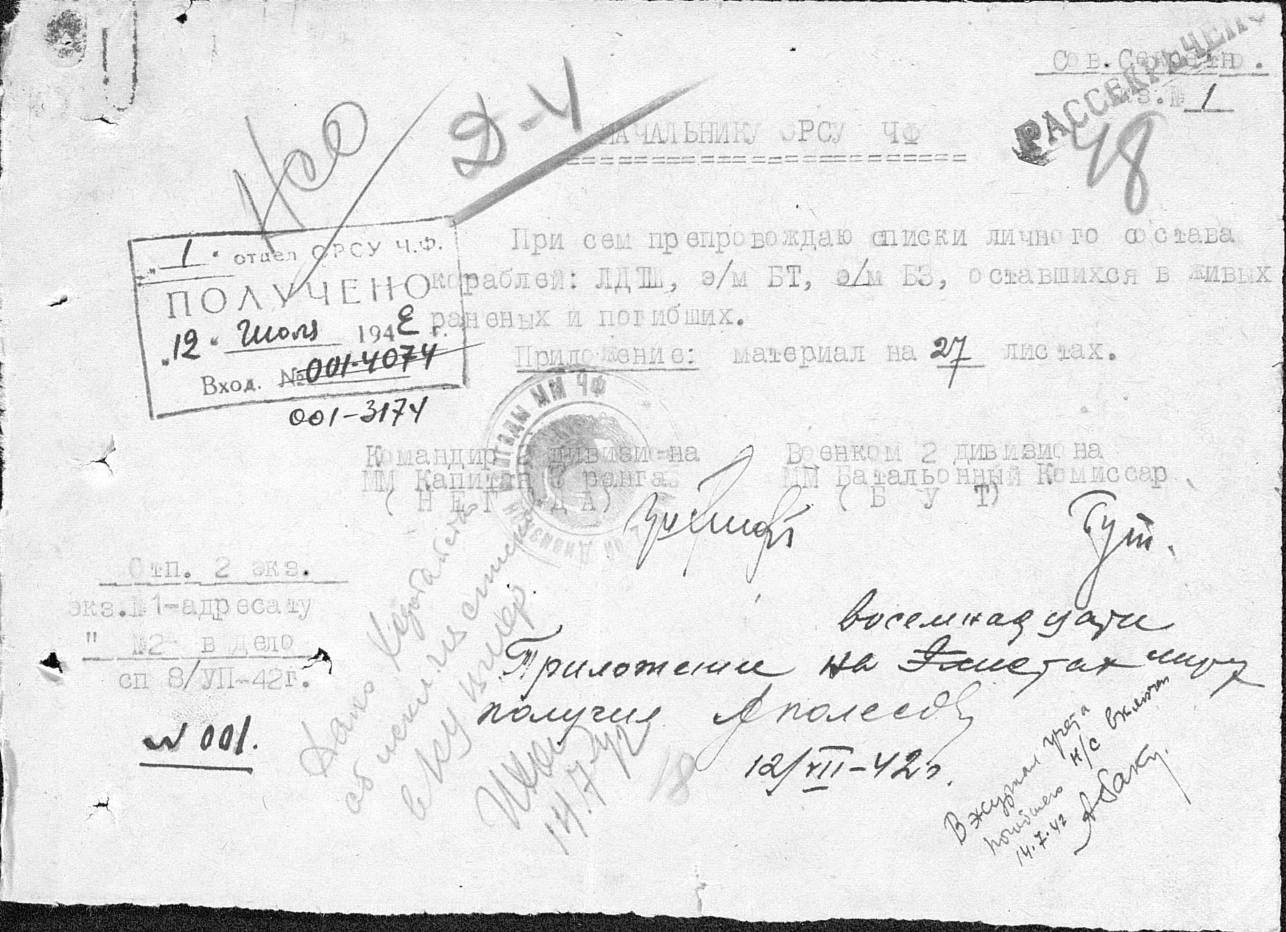 Сов.Секретно.
экз.№ 1
РАССЕКРЕЧЕНО
48
Д-4
НАЧАЛЬНИКУ ОРСУ ЧФ
"1" отдел ОРСУ Ч.Ф.
ПОЛУЧЕНО
"12" Июля 1942 г.
Вход. № 001-4074
001-3174
При сем препровождаю списки личного состава
кораблей: ЛДТШ, э/м БТ, э/м БЗ, оставшихся в живых
раненых и погибших.
Приложение: материал на 27 листах.
Командир 2 дивизиона
ММ Капитан 3 ранга
Военком 2 дивизиона
ММ Батальонный Комиссар
(БУТ)
Бут.
Отп. 2 экз.
экз.№1-адресату
" №2- в Дело
сп 8/УП-42г.
№ 001.
восемнадцати
Приложение на листах
получил
12/VII-42г.
14.7.42
18
В журнал учета
погибшего н/с включен
14.7.42